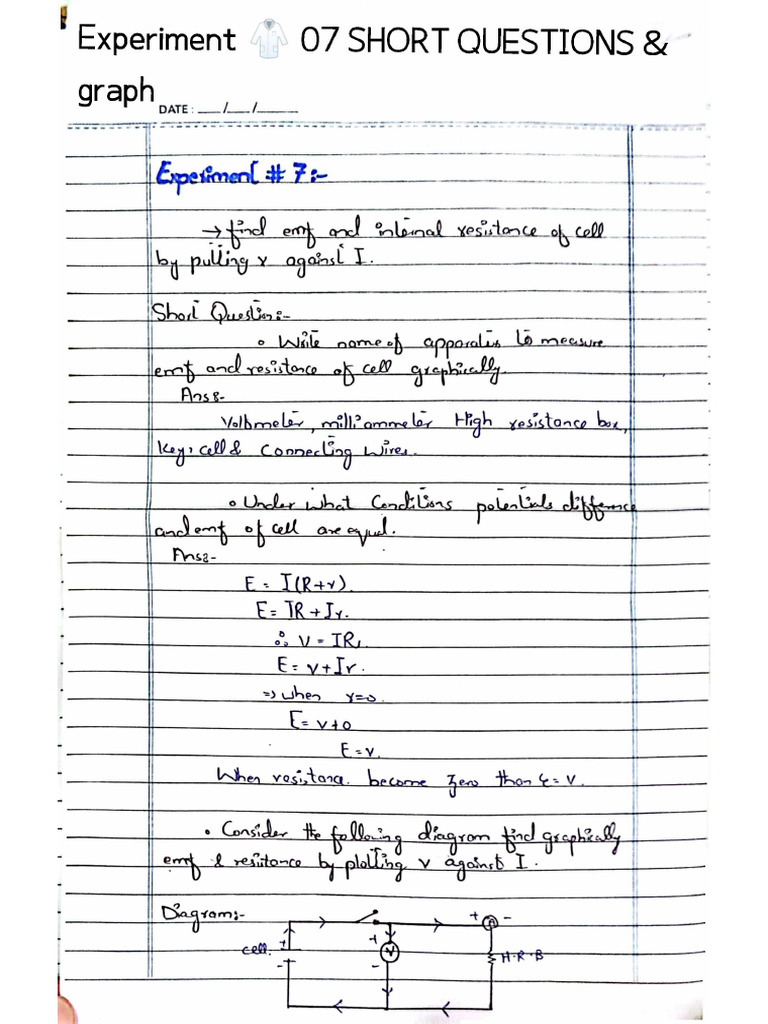 Experiment 🥼 07 SHORT QUESTIONS &
graph
DATE : __/__/____
Experiment # 7:-
→ find emf and internal resistance of cell
by putting v against I.
Short Question:-
• Write name of apparates to measure
emf and resistance of cell graphically.
Ans:-
Voltmeter, milliammeter High resistance box,
Key, cell & Connecting Wires.
• Under what Conditions potentials difference
and emf of cell are equal.
Ans:-
E = I(R+r).
E = IR + Ir.
∴ V = IR,
E = V + Ir.
=> when r=0.
E = V+0
E = V.
When resistance become zero than E = V.
• Consider the following diagram find graphically
emf & resitance by plotting v against I.
Diagram:-
+ A -
cell. + -
+ V -
H.R.B